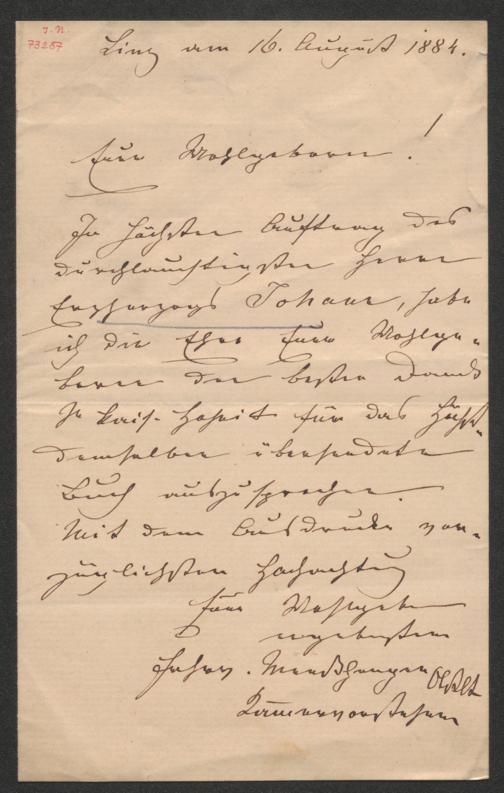 I. N.
73267
Linz am 16. August 1884.
Euer Wohlgeboren!
In höchsten Auftrag des
durchlauchtigsten Herrn
Erzherzogs Johann, habe
ich die Ehre Euer Wohlge-
boren den besten Dank
Sr kais. Hoheit für das Höchst-
demselben übersendete
Buch auszusprechen.
Mit dem Ausdrucke vor-
züglichsten Hochachtung
Euer Wohlgeboren
ergebenster
Oblt
Kammervorsteher